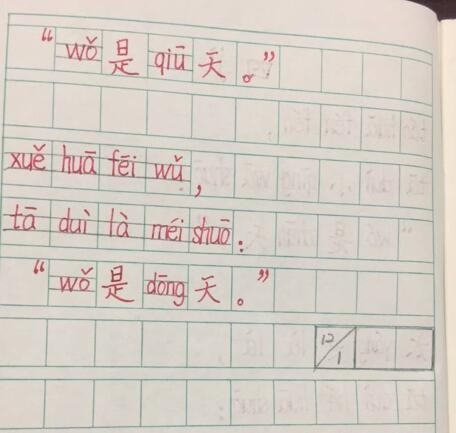 “wǒ是qiū天。”
xuě huā fēi wǔ，
tā duì là méi shuō：
“wǒ是dōng天。”
12/1